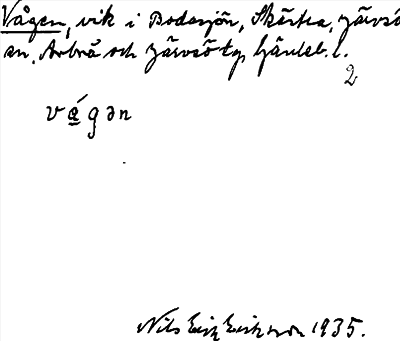 Vågen, vik i Bodasjön, Skästra, Järvsö
sn, Arbrå och Järvsö tg Gävleb. l.
2
vågən
Nils Erik Eriksson 1935.